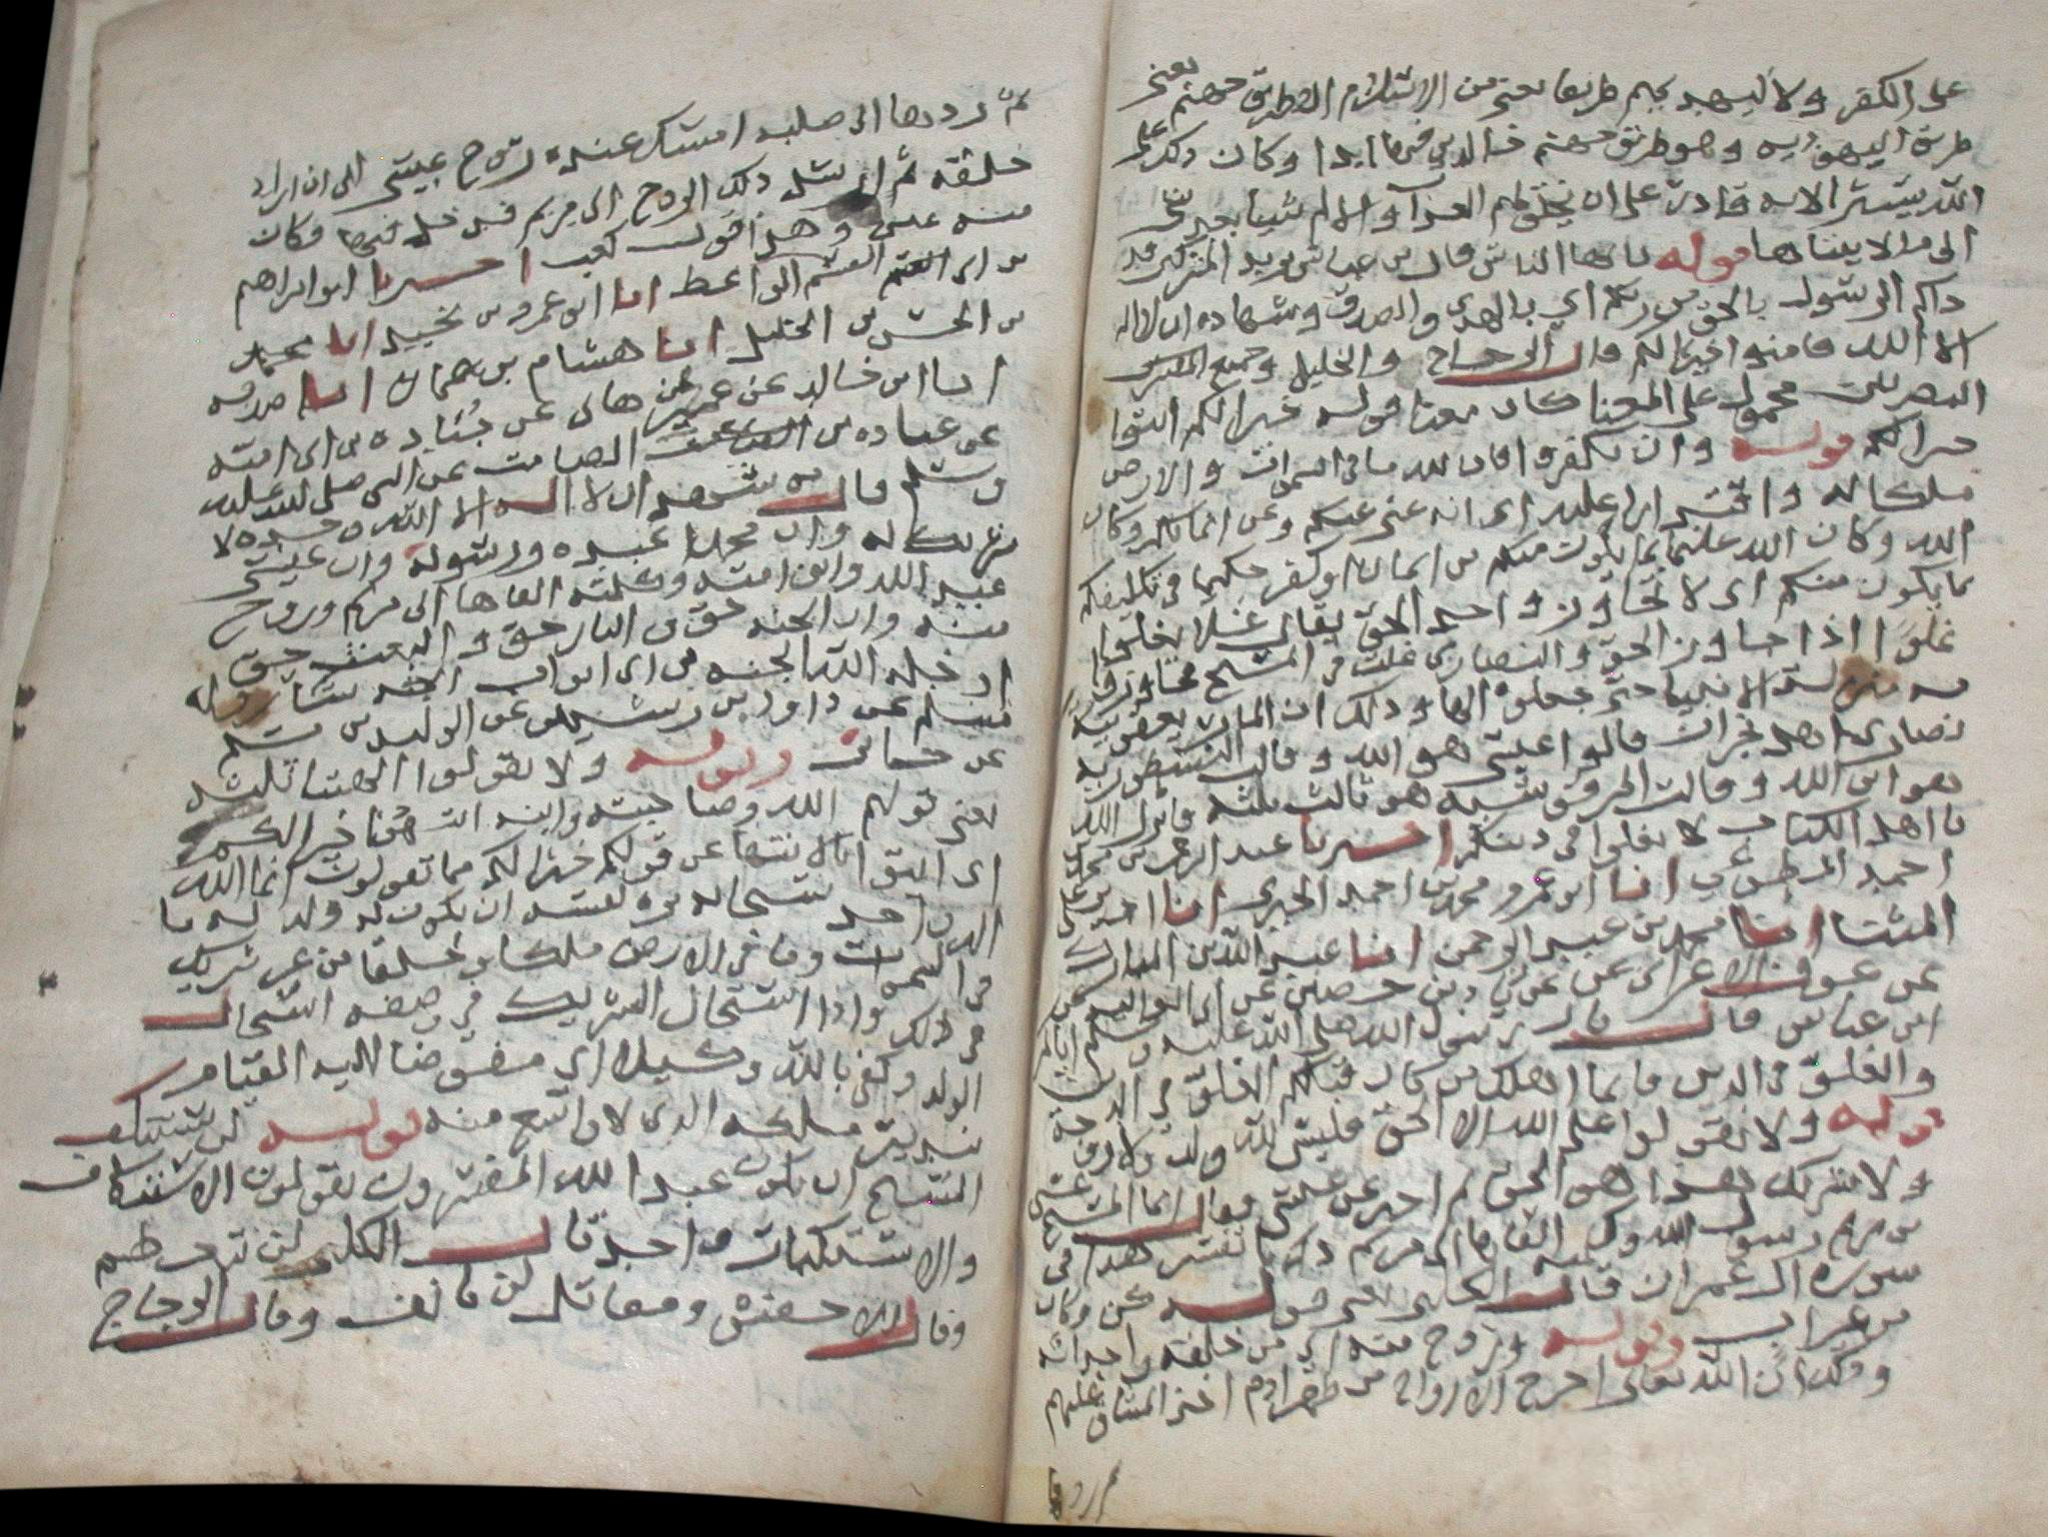 على الكفر ولا ليهديهم طريقا يعني من الاسلام الا طريق جهنم يعني
طريق اليهودية وهو طريق جهنم خالدين فيها ابدا وكان ذلك على
الله يسيرا لانه قادر على ان يخلق لهم العذاب والالم شيا بعد شي
الى ما لا يتناها قوله يايها الناس قال بن عباس يريد المشركين قد
جاكم الرسول بالحق من ربكم اي بالهدى والصدق وشهادة ان لا اله
الا الله فامنوا خيرا لكم قال الزجاج والخليل وجميع
البصريين محمول على المعنا كان معنا قوله خيرا لكم ايتوا
خيرا لكم قوله وان تكفروا فان لله ما في السموات والارض
ملكا له اي انه غني عنكم وعن ايمانكم وكان
الله وكان الله عليما بما يكون منكم من ايمان او كفر حكيما في تكليفكم
ما يكون منكم اي لا تجاوزوا حد الحق يقال غلا يغلوا
غلوا اذا جاوز الحق والنصارى غلت في المسيح
منزلة الانبيا حتى جعلوه الها وذلك ان المار يعقوبية
نصارى اهل نجران قالوا عيسى هو الله وقالت النسطورية
هو ابن الله وقالت المرقوسية هو ثالث ثلثة فانزل الله
يا اهل الكتاب لا تغلوا في دينكم اخبرنا عبد الرحمن بن محمد
احمد انا ابو عمرو محمد بن احمد الحيري انا احمد بن علي
المثنا انبا محمد بن عبد الرحمن انبا عبد الله بن المبارك
عن عوف الاعرابي عن زياد بن حصين عن ابي العالية عن
ابن عباس قال قال رسول الله صلى الله عليه وسلم اياكم
والغلو في الدين فانما اهلك من كان قبلكم الغلو في الدين
قوله ولا تقولوا على الله الا الحق فليس لله ولد ولا زوجة
ولا شريك هذا هو الحق ثم اخبر عن عيسى فقال انما المسيح عيسى
بن مريم رسول الله وكلمته القاها الى مريم ذكرنا تفسير هذا في
سورة ال عمران قال الكلبي يعني قوله كن فكان
من غير اب وقوله وروح منه اي من خلقه واحداثه
وذلك ان الله تعالى اخرج الارواح من ظهر ادم اخذ الميثاق عليهم
ثم ردها
ثم ردها الى صلبه امسك عنده روح عيسى الى ان اراد
خلقه ثم ارسل ذلك الروح الى مريم فدخل فيها فكان
منه عيسى وهذا قول كعب اخبرنا ابو ابراهيم
بن ابي القسم الواعظ انا ابو عمرو بن نجيد انا محمد
بن الحسن بن الخليل انبا هشام بن عمار انبا صدقه
انبا ابن خالد عن عمير بن هاني عن جناده بن ابي اميه
عن عباده بن الصامت عن النبي صلى الله عليه
وسلم قال من شهد ان لا اله الا الله وحده لا
شريك له وان محمدا عبده ورسوله وان عيسى
عبد الله وابن امته وكلمته القاها الى مريم وروح
منه وان الجنه حق وان النار حق والبعث حق
ادخله الله الجنه من اي ابواب الجنه شا رواه
مسلم عن داود بن رشيد عن الوليد بن مسلم
عن جابر وقوله ولا تقولوا الهتنا ثلثه
يعني قولهم الله وصاحبته وابنه انتهوا خيرا لكم
اي ايتوا بالانتها عن قولكم خيرا لكم مما تقولون انما الله
اله واحد سبحانه نزه نفسه ان يكون له ولد له ما
في السموات وما في الارض ملكا وخلقا من غير شريك
في ذلك واذا استحال الشريك في وصفه استحال
الولد وكفى بالله وكيلا اي مفوضا اليه القيام
بتدبير ملكه الذي لا اتسع منه قوله لن يستنكف
المسيح ان يكون عبدا لله المفسرون يقولون الاستنكاف
والاستكبار واحد قال الكلبي لن
وقال الاخفش ومقاتل لن يانف وقال الزجاج